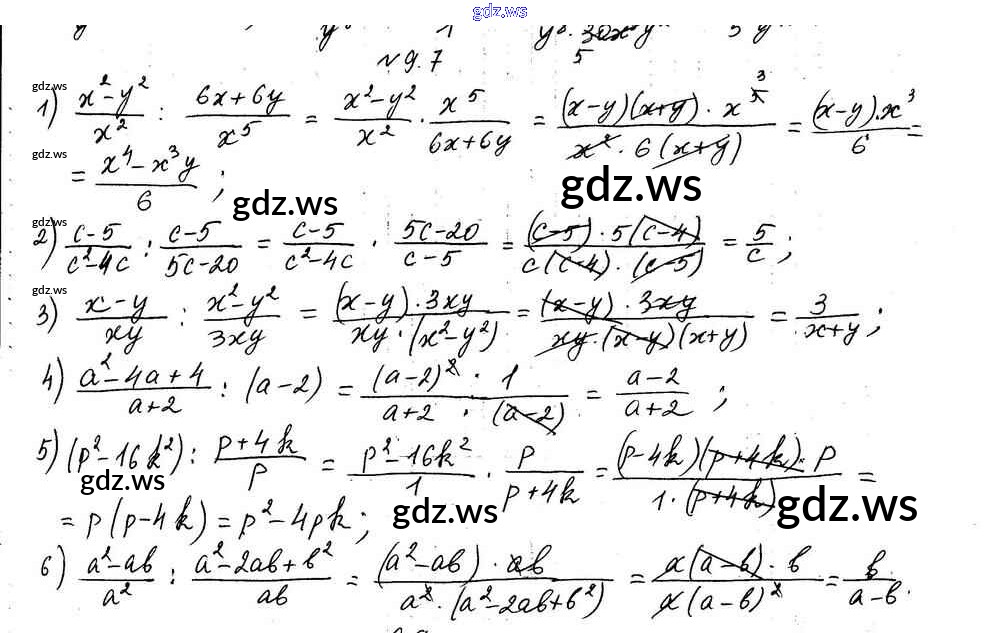 gdz.ws
№9.7
gdz.ws
1) (x²-y²)/x² : (6x+6y)/x⁵ = (x²-y²)/x² · x⁵/(6x+6y) = ((x-y)(x+y) · x⁵ ³)/(x² · 6(x+y)) = ((x-y)·x³)/6 =
gdz.ws
= (x⁴-x³y)/6 ;
gdz.ws gdz.ws
gdz.ws
2) (c-5)/(c²-4c) : (c-5)/(5c-20) = (c-5)/(c²-4c) · (5c-20)/(c-5) = ((c-5)·5(c-4))/(c(c-4)·(c-5)) = 5/c ;
gdz.ws
3) (x-y)/(xy) : (x²-y²)/(3xy) = ((x-y)·3xy)/(xy·(x²-y²)) = ((x-y)·3xy)/(xy·(x-y)(x+y)) = 3/(x+y) ;
4) (a²-4a+4)/(a+2) : (a-2) = ((a-2)² · 1)/(a+2 · (a-2)) = (a-2)/(a+2) ;
5) (p²-16k²) : (p+4k)/p = (p²-16k²)/1 · p/(p+4k) = ((p-4k)(p+4k)·p)/(1·(p+4k)) =
gdz.ws gdz.ws gdz.ws
= p(p-4k) = p²-4pk ;
6) (a²-ab)/a² : (a²-2ab+b²)/(ab) = ((a²-ab)·ab)/(a²·(a²-2ab+b²)) = (a(a-b)·b)/(a(a-b)²) = b/(a-b).